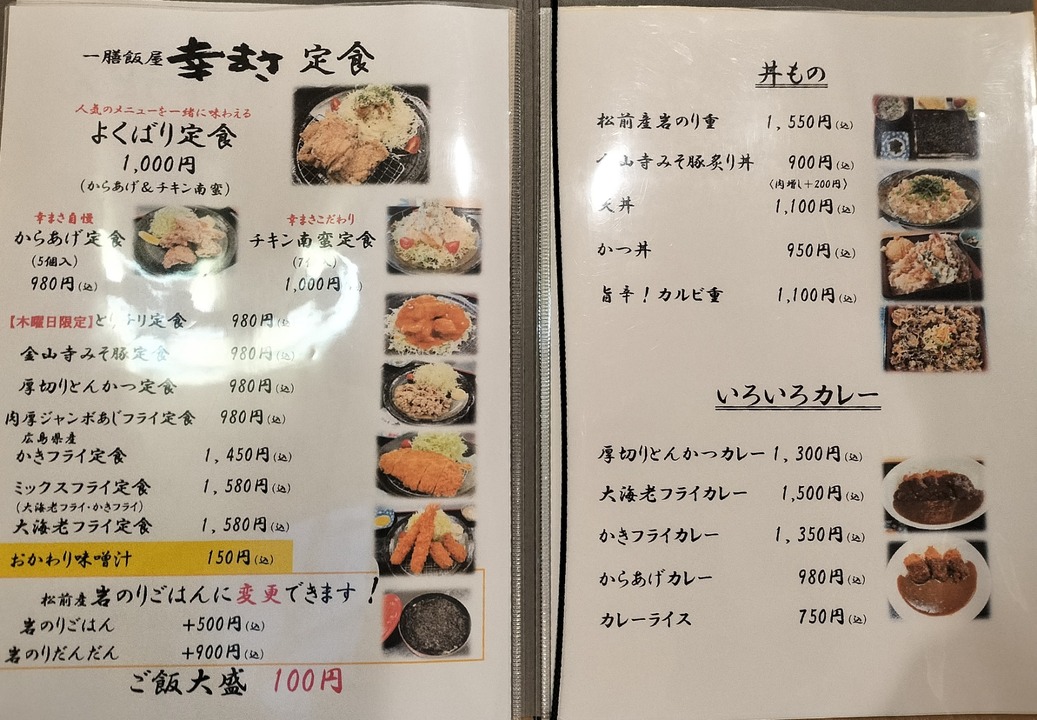 一膳飯屋 幸まさ 定食
人気のメニューを一緒に味わえる
よくばり定食
1,000円
(からあげ&チキン南蛮)
幸まさ自慢
からあげ定食
(5個入)
980円(込)
幸まさこだわり
チキン南蛮定食
1,000円
【木曜日限定】と り定食 980円(込)
金山寺みそ豚定食 980円(込)
厚切りとんかつ定食 980円(込)
肉厚ジャンボあじフライ定食 980円(込)
広島県産
かきフライ定食 1,450円(込)
ミックスフライ定食 1,580円(込)
(大海老フライ・かきフライ)
大海老フライ定食 1,580円(込)
おかわり味噌汁 150円(込)
松前産岩のりごはんに変更できます!
岩のりごはん +500円(込)
岩のりだんだん +900円(込)
ご飯大盛 100円
丼もの
松前産岩のり重 1,550円(込)
山寺みそ豚炙り丼 900円(込)
(肉増し+200円)
天丼 1,100円(込)
かつ丼 950円(込)
旨辛!カルビ重 1,100円(込)
いろいろカレー
厚切りとんかつカレー 1,300円(込)
大海老フライカレー 1,500円(込)
かきフライカレー 1,350円(込)
からあげカレー 980円(込)
カレーライス 750円(込)